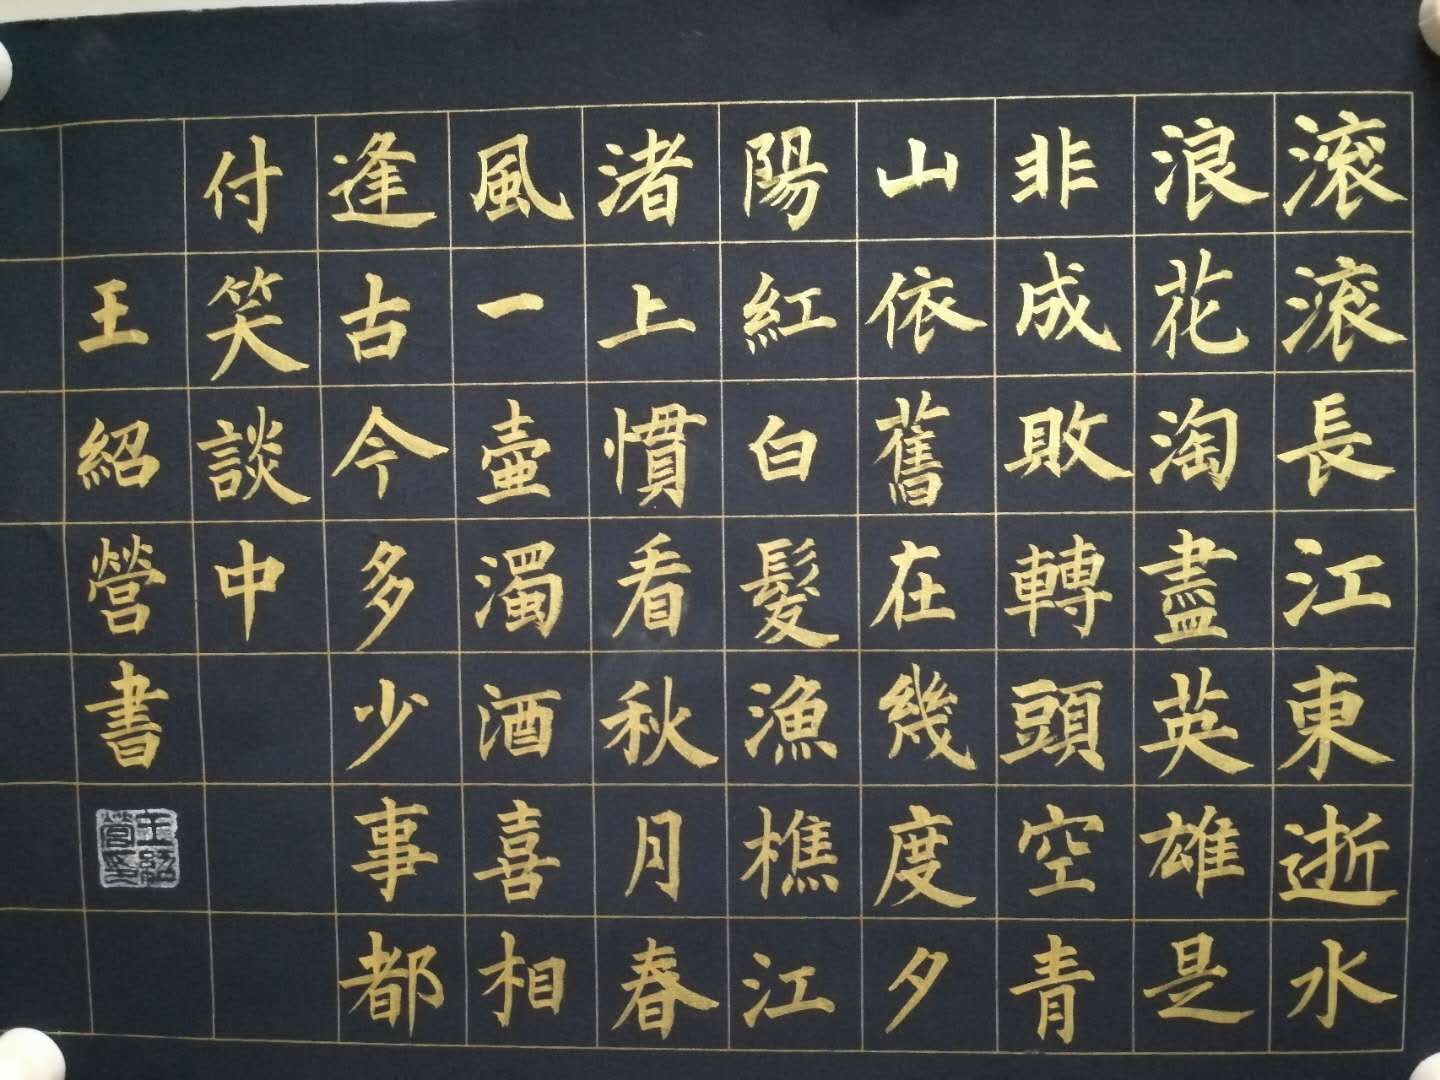 滾滾長江東逝水
浪花淘盡英雄是
非成敗轉頭空青
山依舊在幾度夕
陽紅白髮漁樵江
渚上慣看秋月春
風一壺濁酒喜相
逢古今多少事都
付笑談中
王紹營書
王紹營印